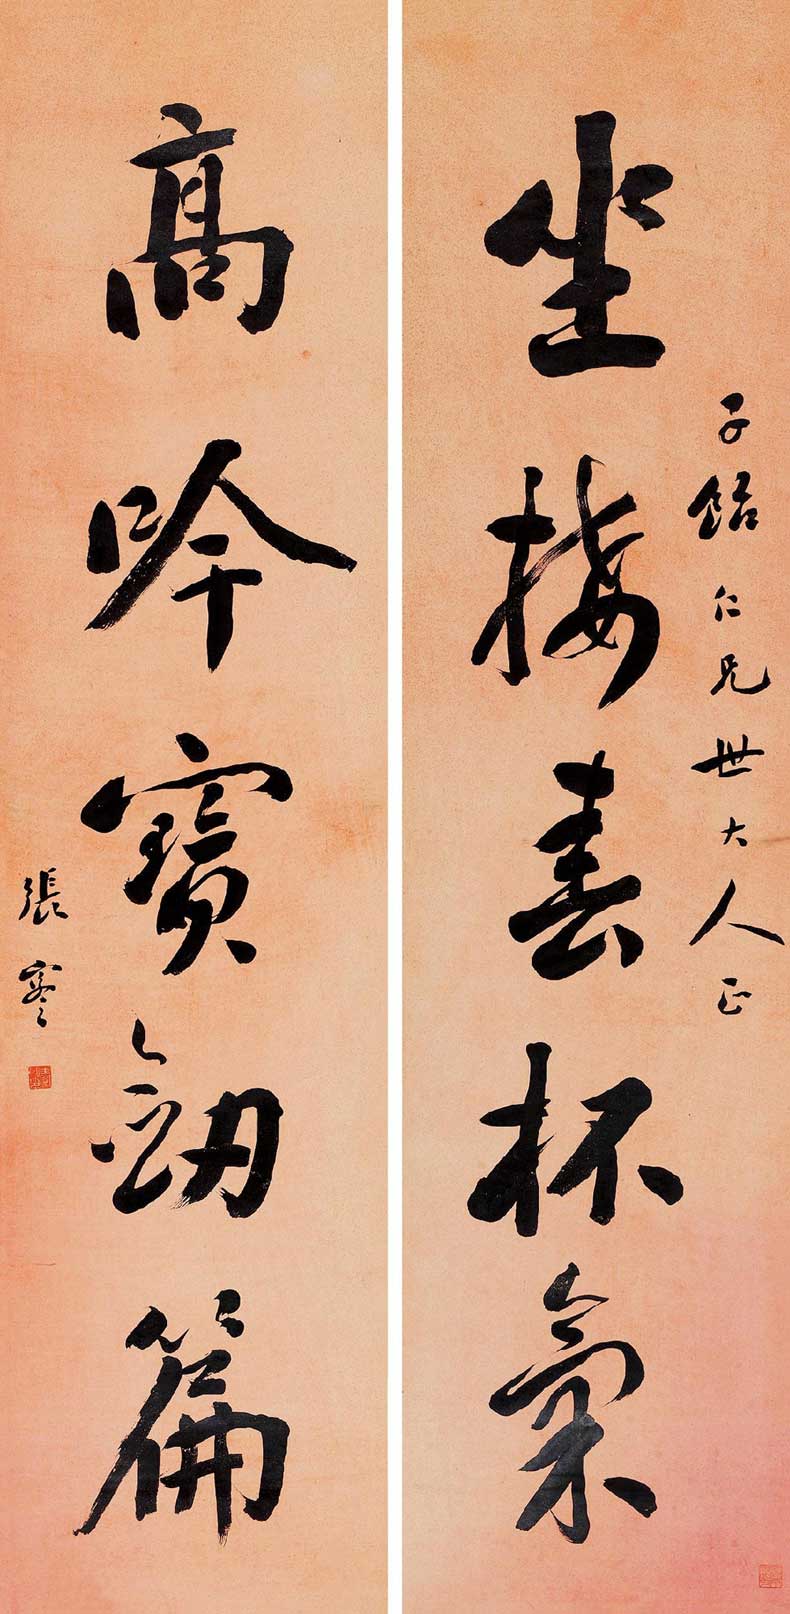 子飴仁兄世大人正
坐接春杯氣
高吟寶劒篇
張謇